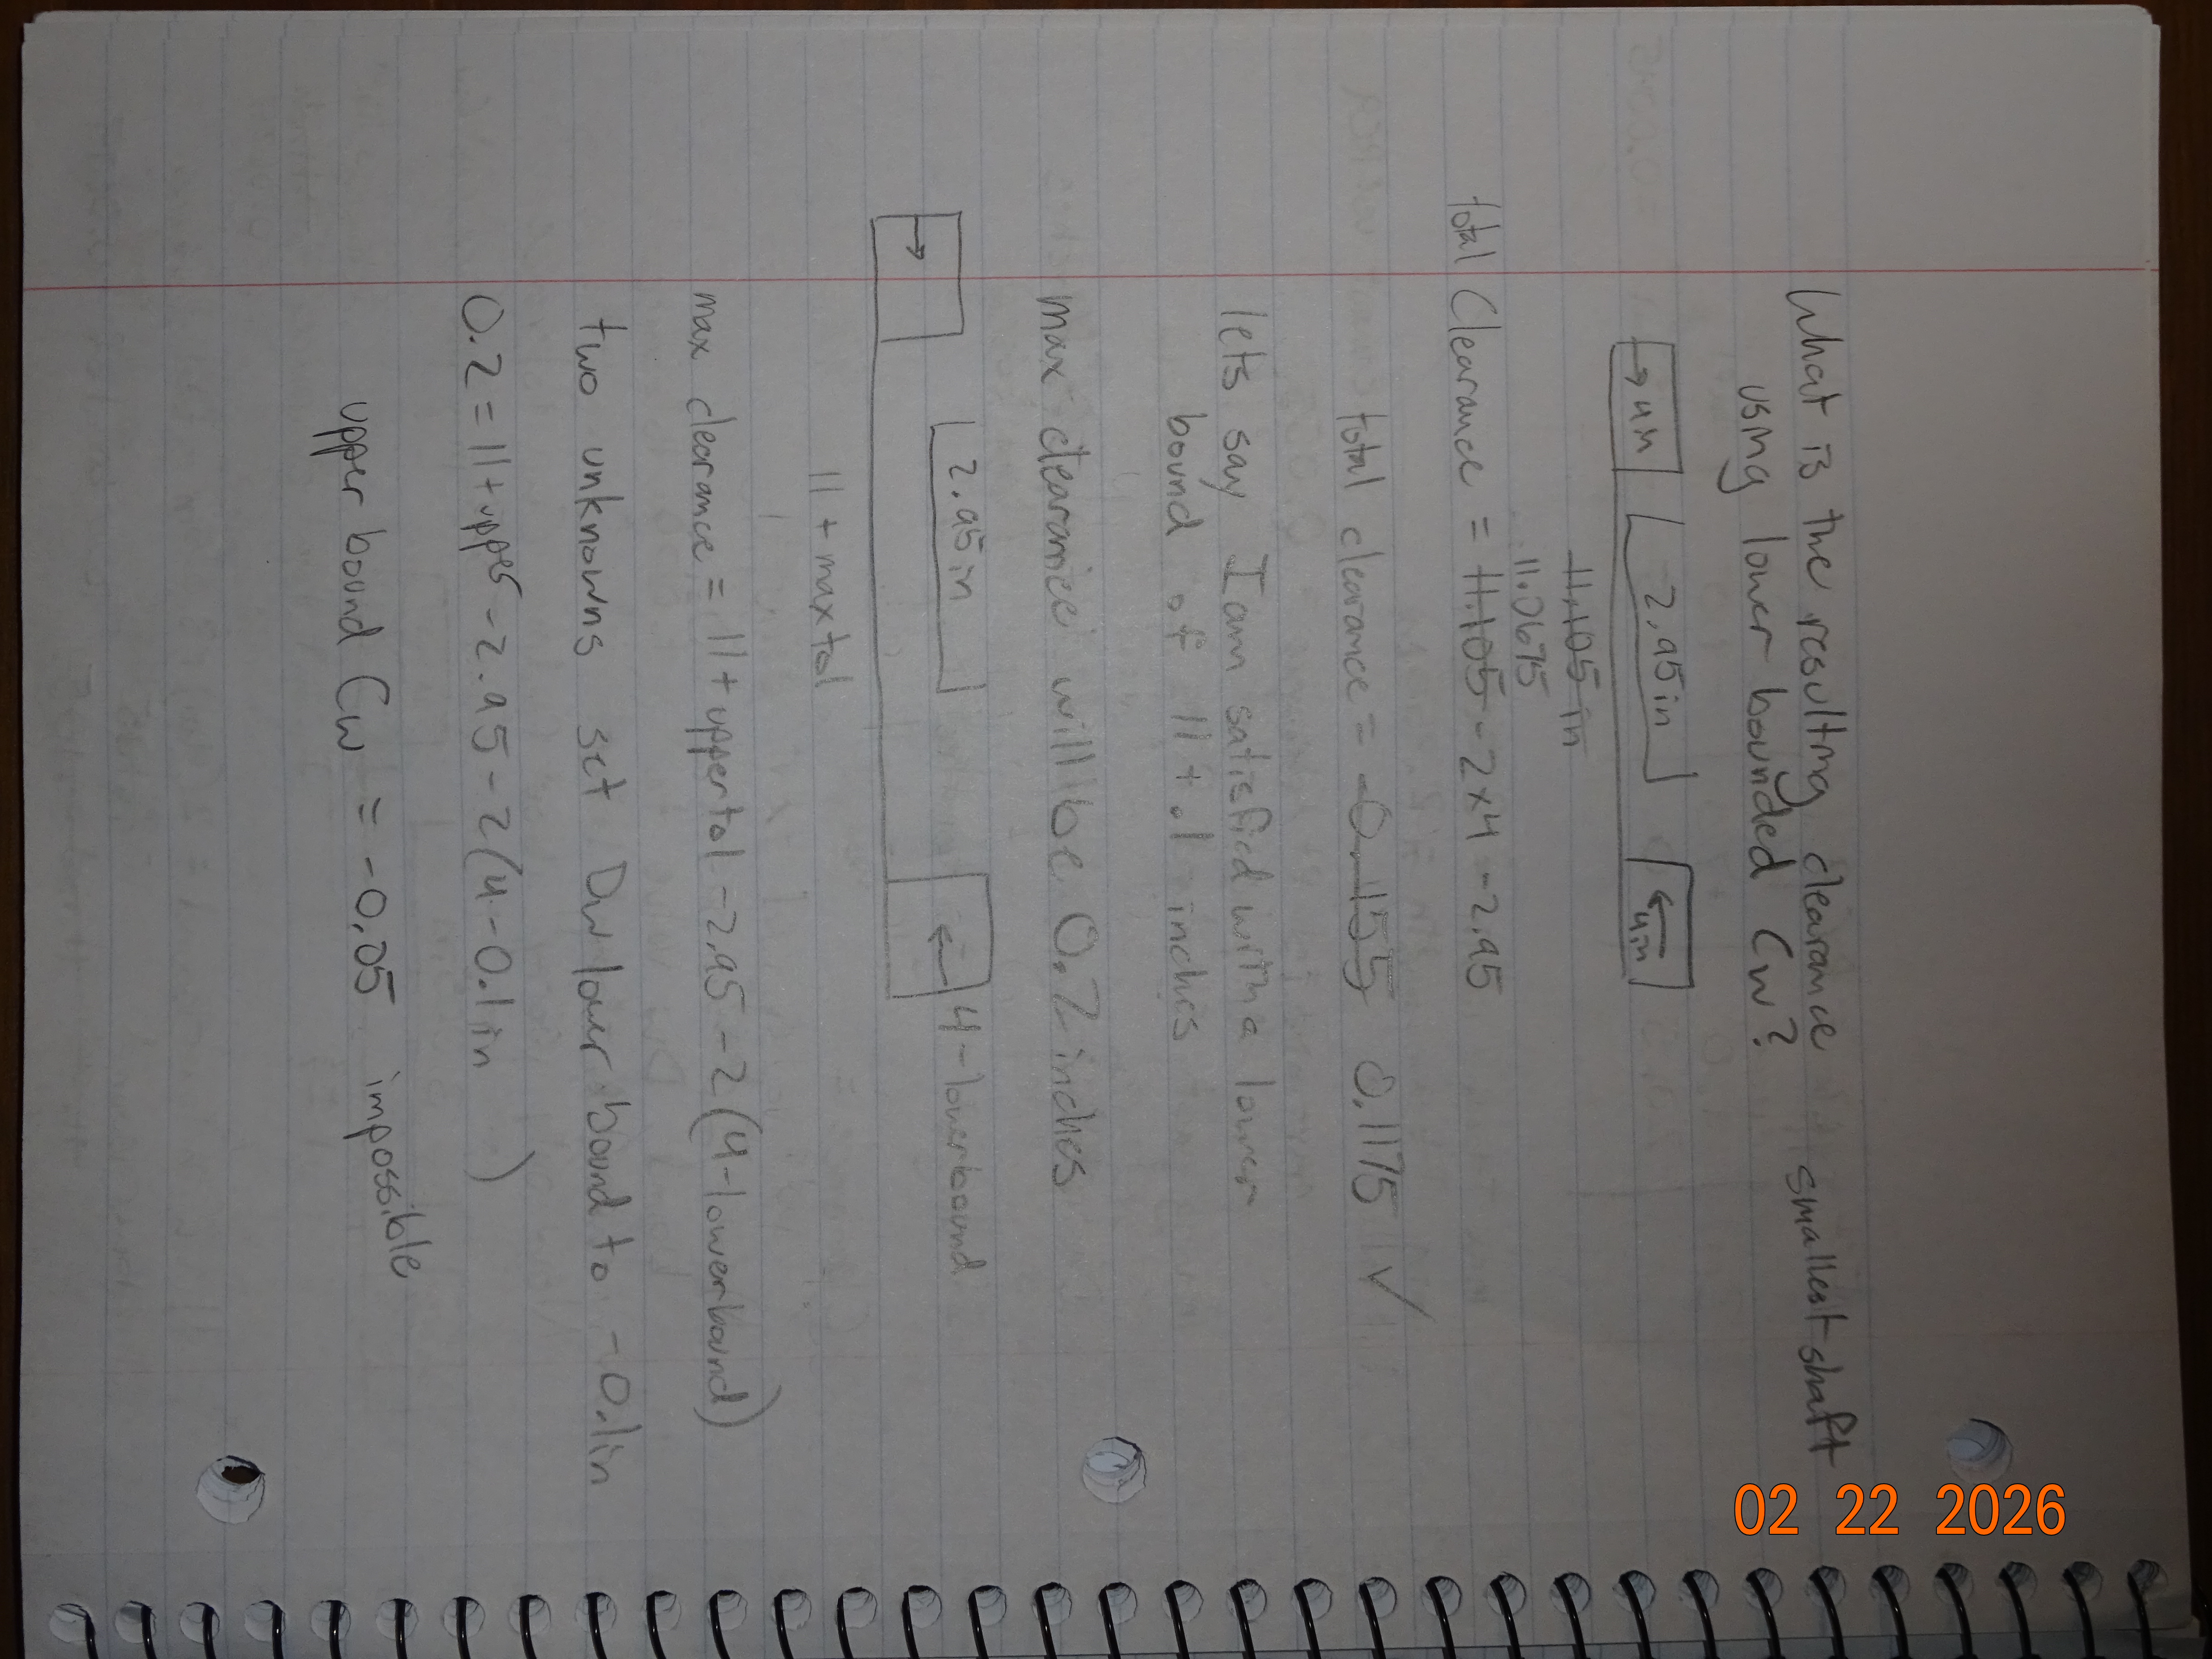 What is the resulting clearance smallest shaft
using lower bounded Cw?
4in 2.95in 4in
11.105 in
11.0675
total Clearance = 11.105 - 2x4 - 2.95
total clearance = -0.155 0.1175 ✓
lets say I am satisfied with a lower
bound of 11 + .1 inches
max clearance will be 0.2 inches
2.95in 4-lowerbound
11 + max tol
max clearance = 11 + upper tol - 2.95 - 2(4-lowerbound)
two unknowns set Dw lower bound to -0.1in
0.2 = 11 + upper - 2.95 - 2(4-0.1in )
upper bound Cw = -0.05 impossible
02 22 2026